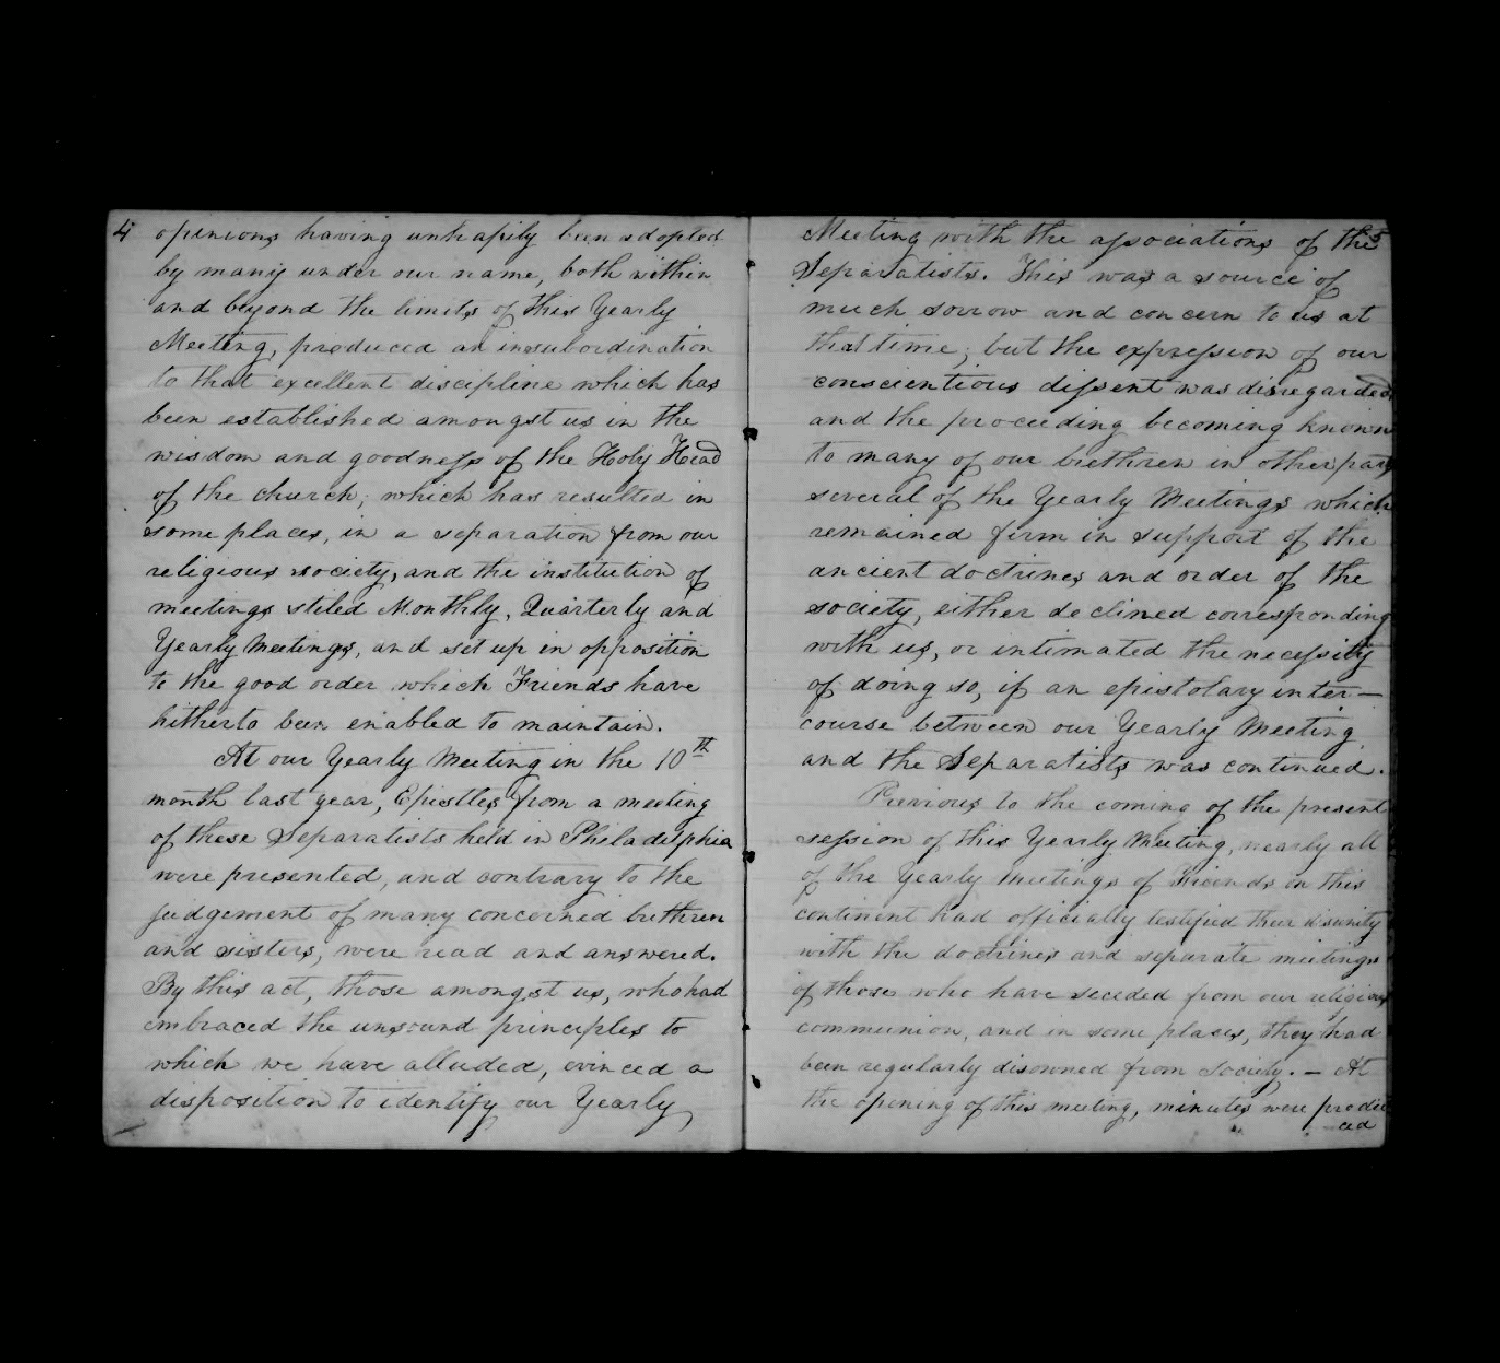 4
opinions having unhapily been adopted
by many under our name, both within
and beyond the limits of this Yearly
Meeting, produced an insubordination
to that excellent discipline which has
been established amongst us in the
wisdom and goodness of the Holy Head
of the church; which has resulted in
some places, in a separation from our
religious society, and the institution of
meetings stiled Monthly, Quarterly and
Yearly Meetings, and set up in opposition
to the good order which Friends have
hitherto been enabled to maintain.
At our Yearly Meeting in the 10th
month last year, Epistles from a meeting
of these Separatists held in Philadelphia
were presented, and contrary to the
judgement of many concerned brethren
and sisters, were read and answered.
By this act, those amongst us, who had
embraced the unsound principles to
which we have alluded, evinced a
disposition to identify our Yearly
5
Meeting with the associations of the
Separatists. This was a source of
much sorrow and concern to us at
that time; but the expression of our
conscientious dissent was disregarded,
and the proceeding becoming known
to many of our brethren in other parts
several of the Yearly Meetings which
remained firm in support of the
ancient doctrines and order of the
society, either declined corresponding
with us, or intimated the necessity
of doing so, if an epistolary inter—
course between our Yearly Meeting
and the Separatists was continued.
Previous to the coming of the present
session of this Yearly Meeting, nearly all
of the Yearly Meetings of Friends on this
continent had officially testified their disunity
with the doctrines and separate meetings
of those who have seceded from our religious
communion, and in some places, they had
been regularly disowned from Society. — At
the opening of this meeting, minutes were produ
ced